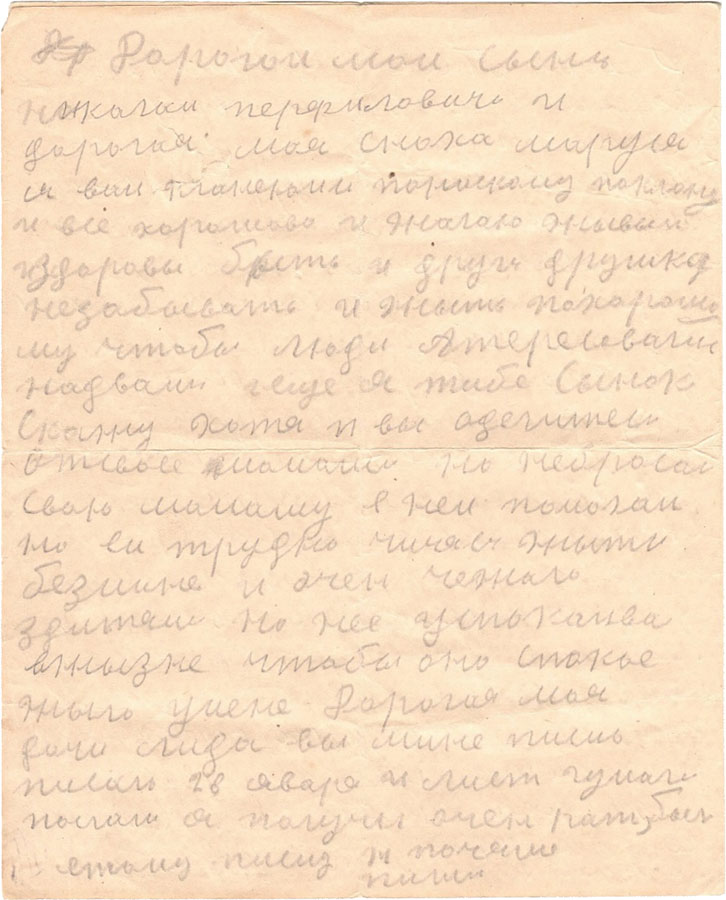 Дорогои мои сынь
николаи перфилович и
дорогая моя сноха маруся
я вам пониском поклон
и все хорошова и жалаю живыи
здоровы быть и друг дружка
незабывать и жыть похорош
му чтобы люди
надвами еще я тибе сынок
скажу хотя и вы
от своеи мамаши но небросаи
свою мамашу в неи помогаи
но еи трудно жыть
безмине и очен чежало
здитями но нее успокаива
вжызне чтобы оно спокое
жыла умене Дорогая моя
дочи лида вы мине писмо
писали 28 январе и лист гумаги
послали я получи очен рат был
етому писму и почаше
пиши